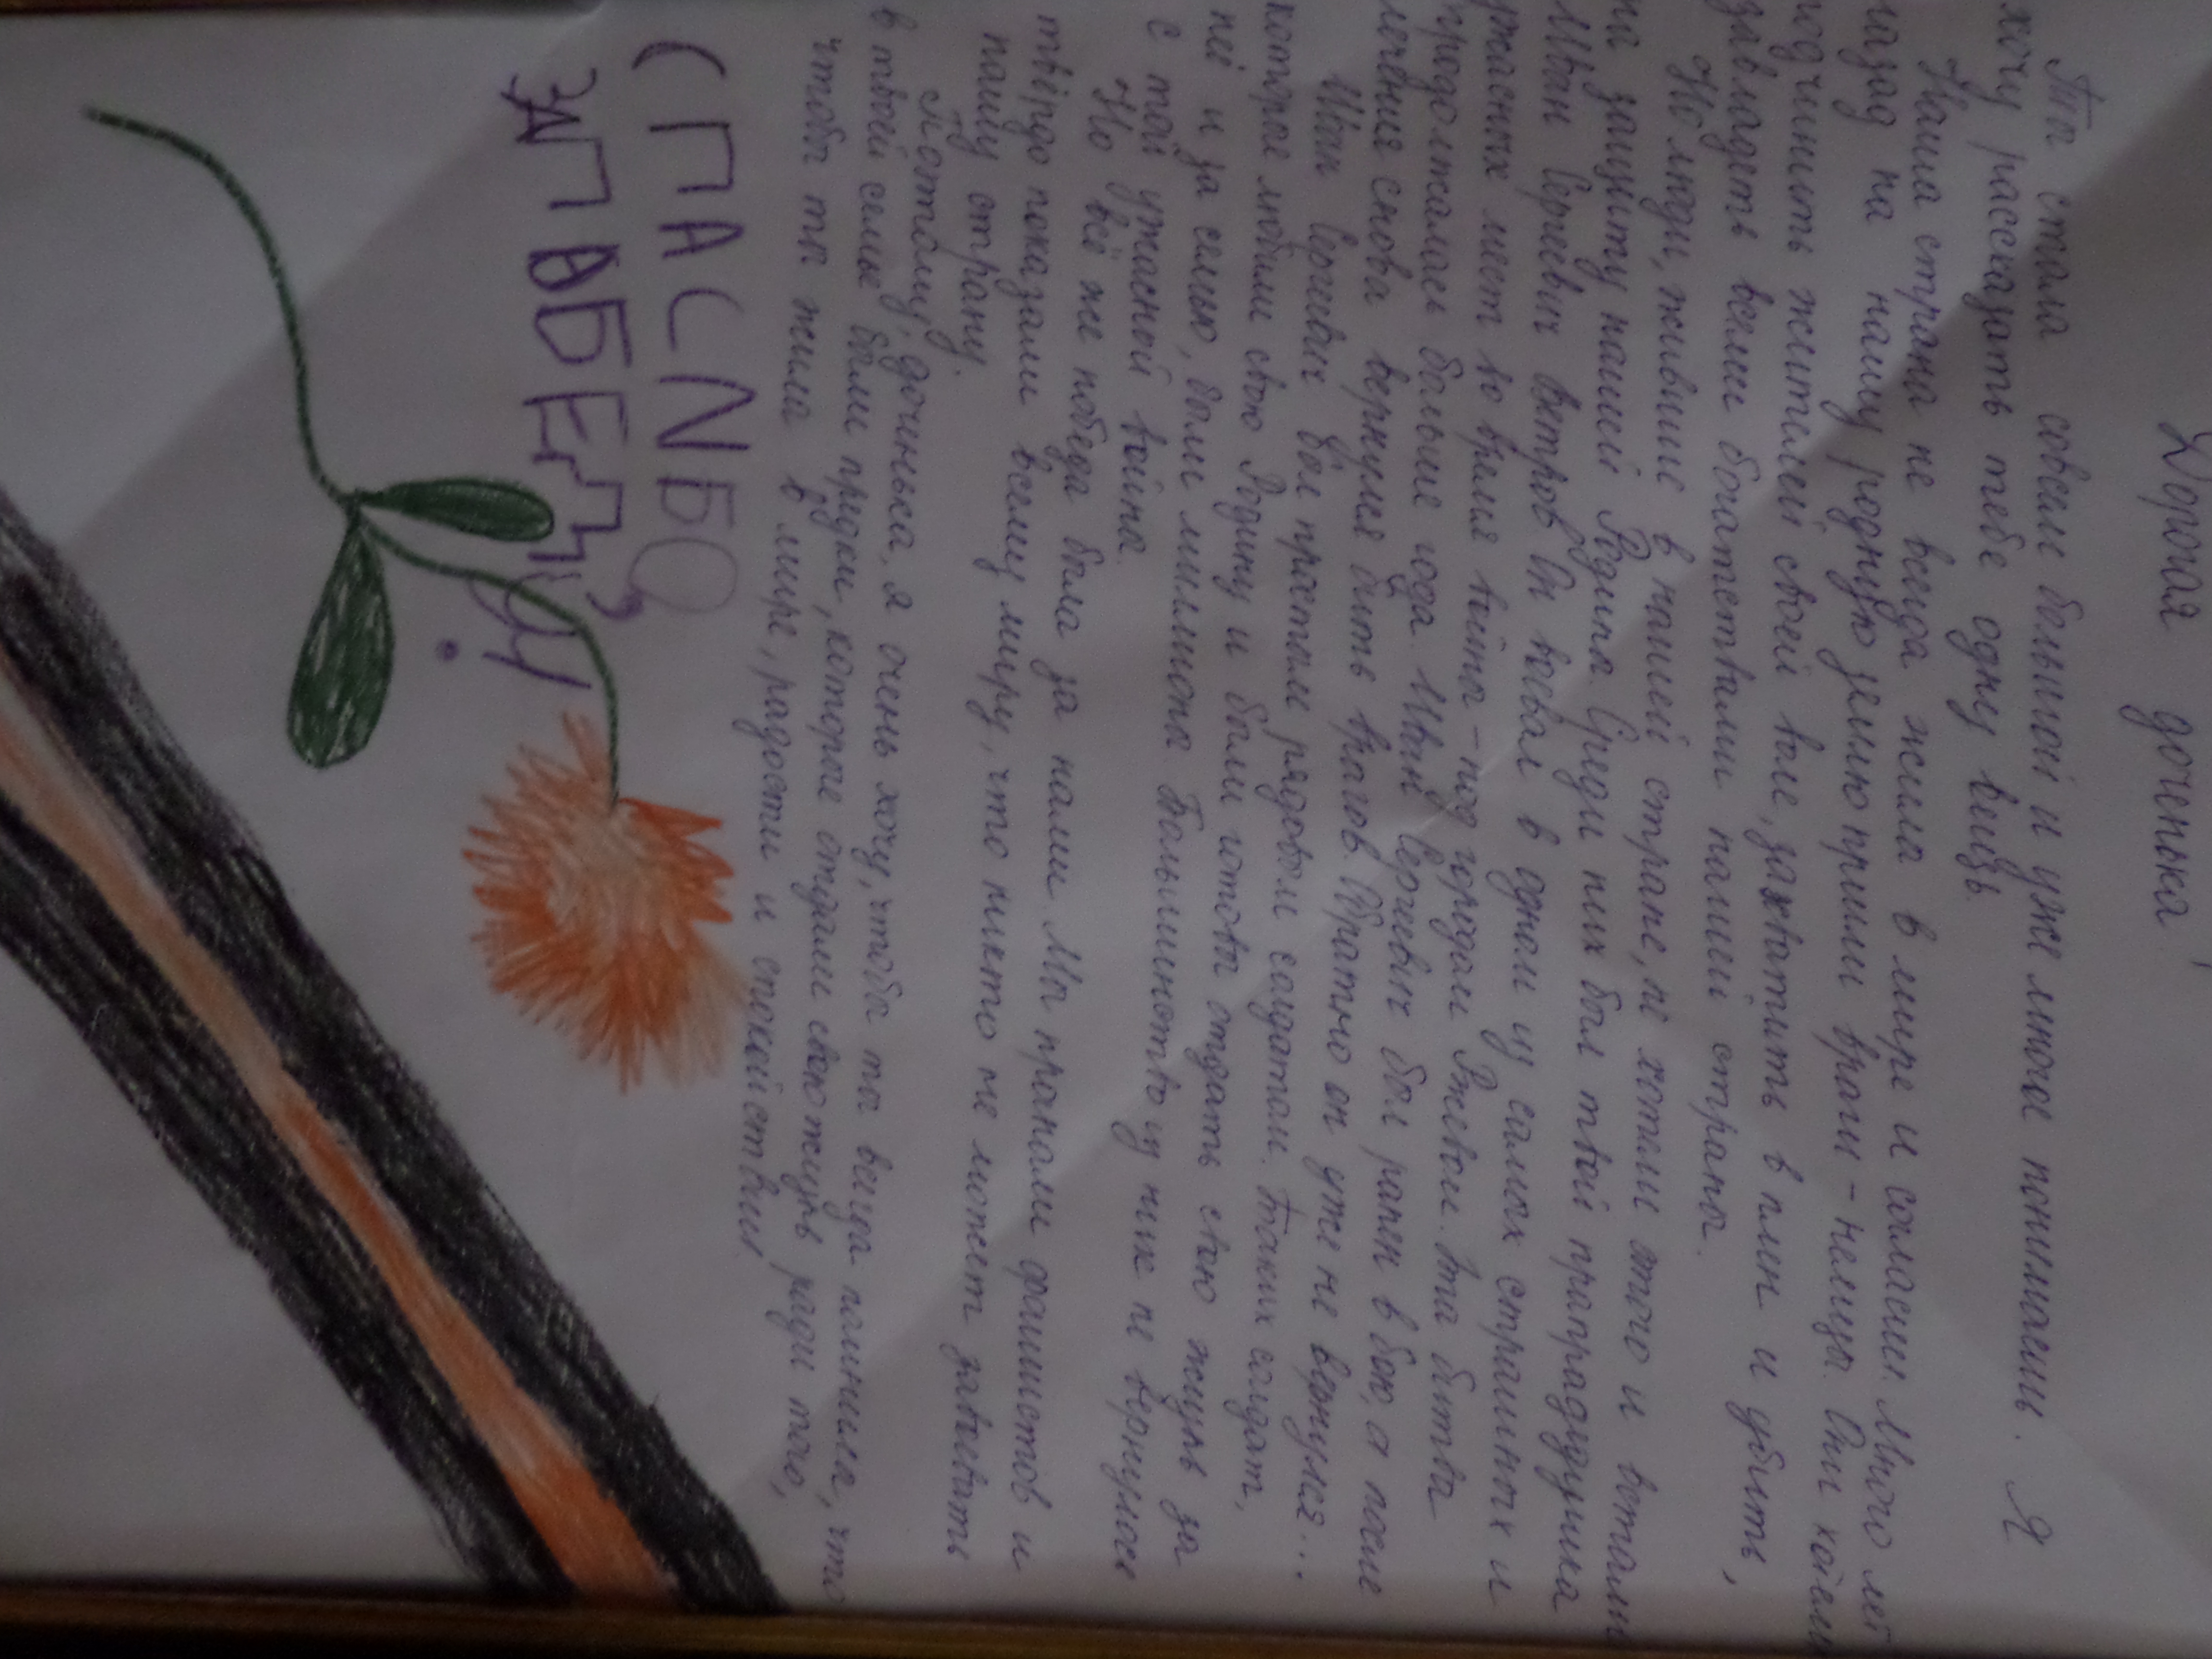 Дорогая доченька!
Ты стала совсем большой и уже многое понимаешь. Я
хочу рассказать тебе одну вещь.
Наша страна не всегда жила в мире и согласии. Много лет
назад на нашу родную землю пришли враги - немцы. Они хотели
подчинить жителей своей воле, захватить в плен и убить,
завладеть всеми богатствами нашей страны.
Но люди, жившие в нашей стране, не хотели этого и встали
на защиту нашей Родины. Среди них был твой прапрадедушка
Иван Сергеевич Ветров. Он воевал в одном из самых страшных и
ужасных мест во время войны - под городом Ржевом. Эта битва
продолжалась больше года. Иван Сергеевич был ранен в бою, а после
лечения снова вернулся бить врагов. Обратно он уже не вернулся...
Иван Сергеевич был простым рядовым солдатом. Таких солдат,
которые любили свою Родину и были готовы отдать свою жизнь за
неё и за семью, были миллионы. Большинство из них не вернулось
с той ужасной войны.
Но всё же победа была за нами. Мы прогнали фашистов и
твёрдо показали всему миру, что никто не может завоевать
нашу страну.
Поэтому, доченька, я очень хочу, чтобы ты всегда помнила, что
в твоей семье были предки, которые отдали свою жизнь ради того,
чтобы ты жила в мире, радости и спокойствии.
СПАСИБО
ЗАПАБЕДУ!